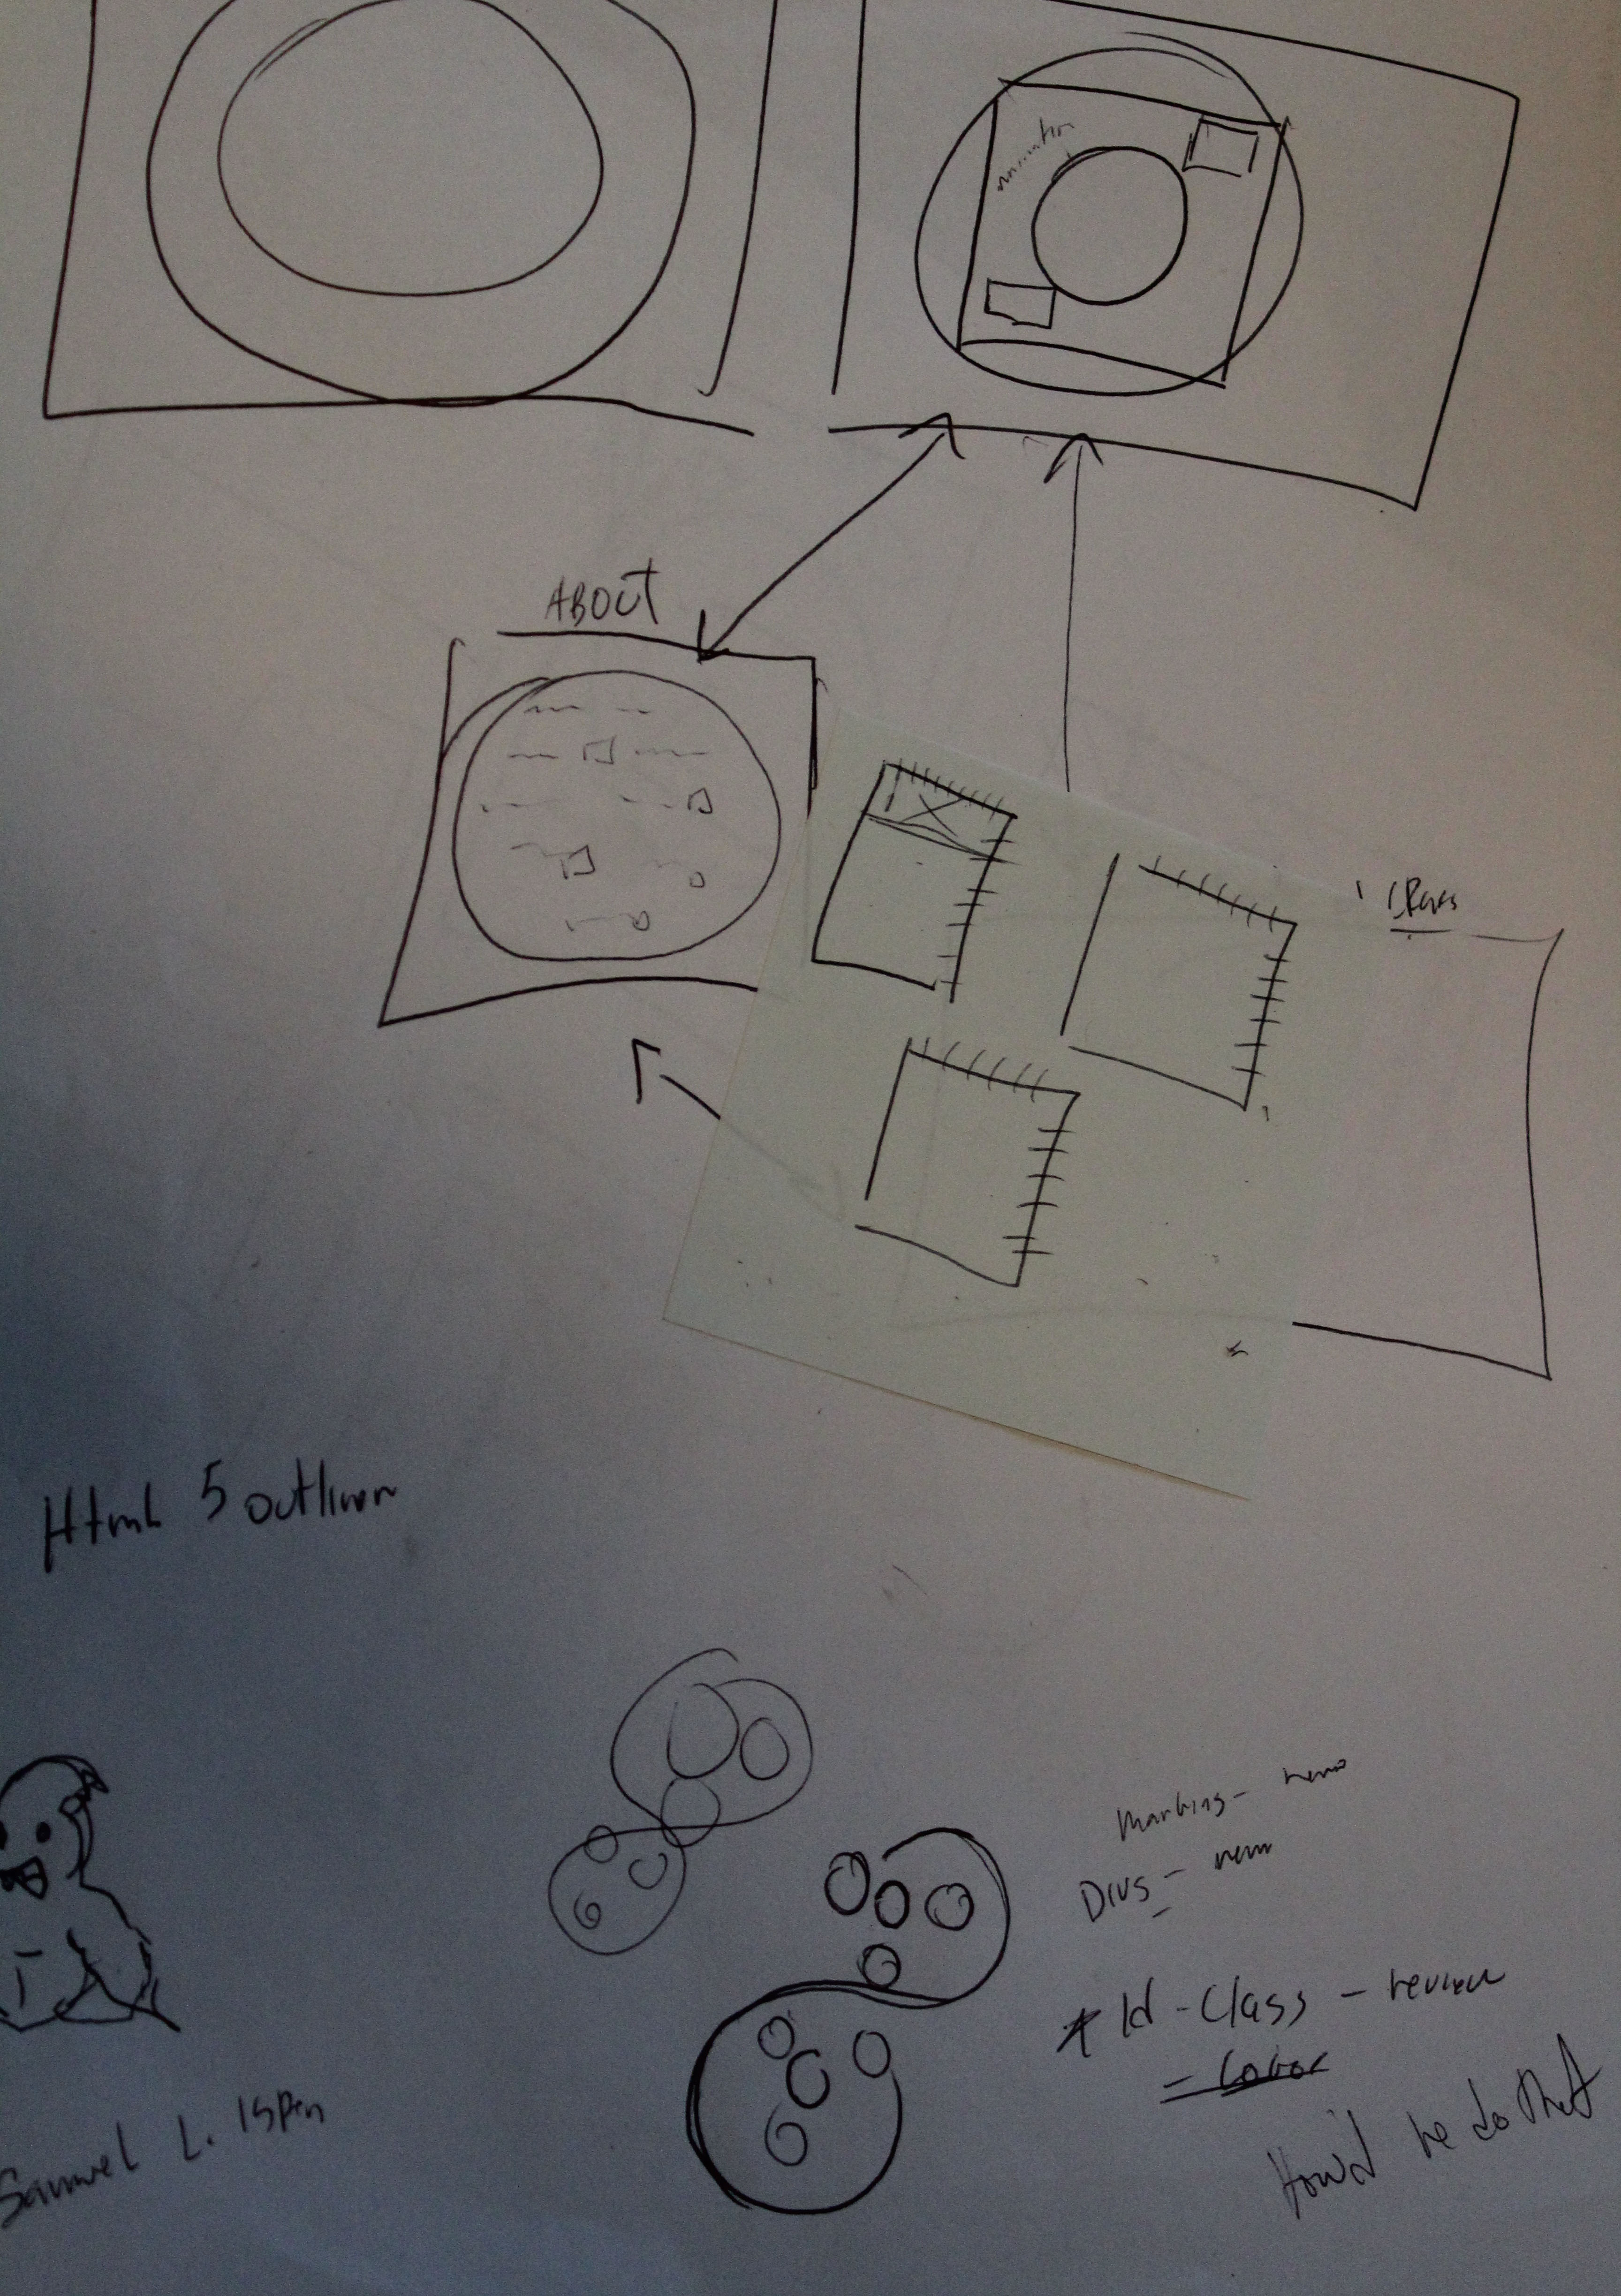 ABOUT
Html 5 outliner
Margins -
Divs -
* Id - Class - review
= Color
How'd he do that
Samuel L. Ispen